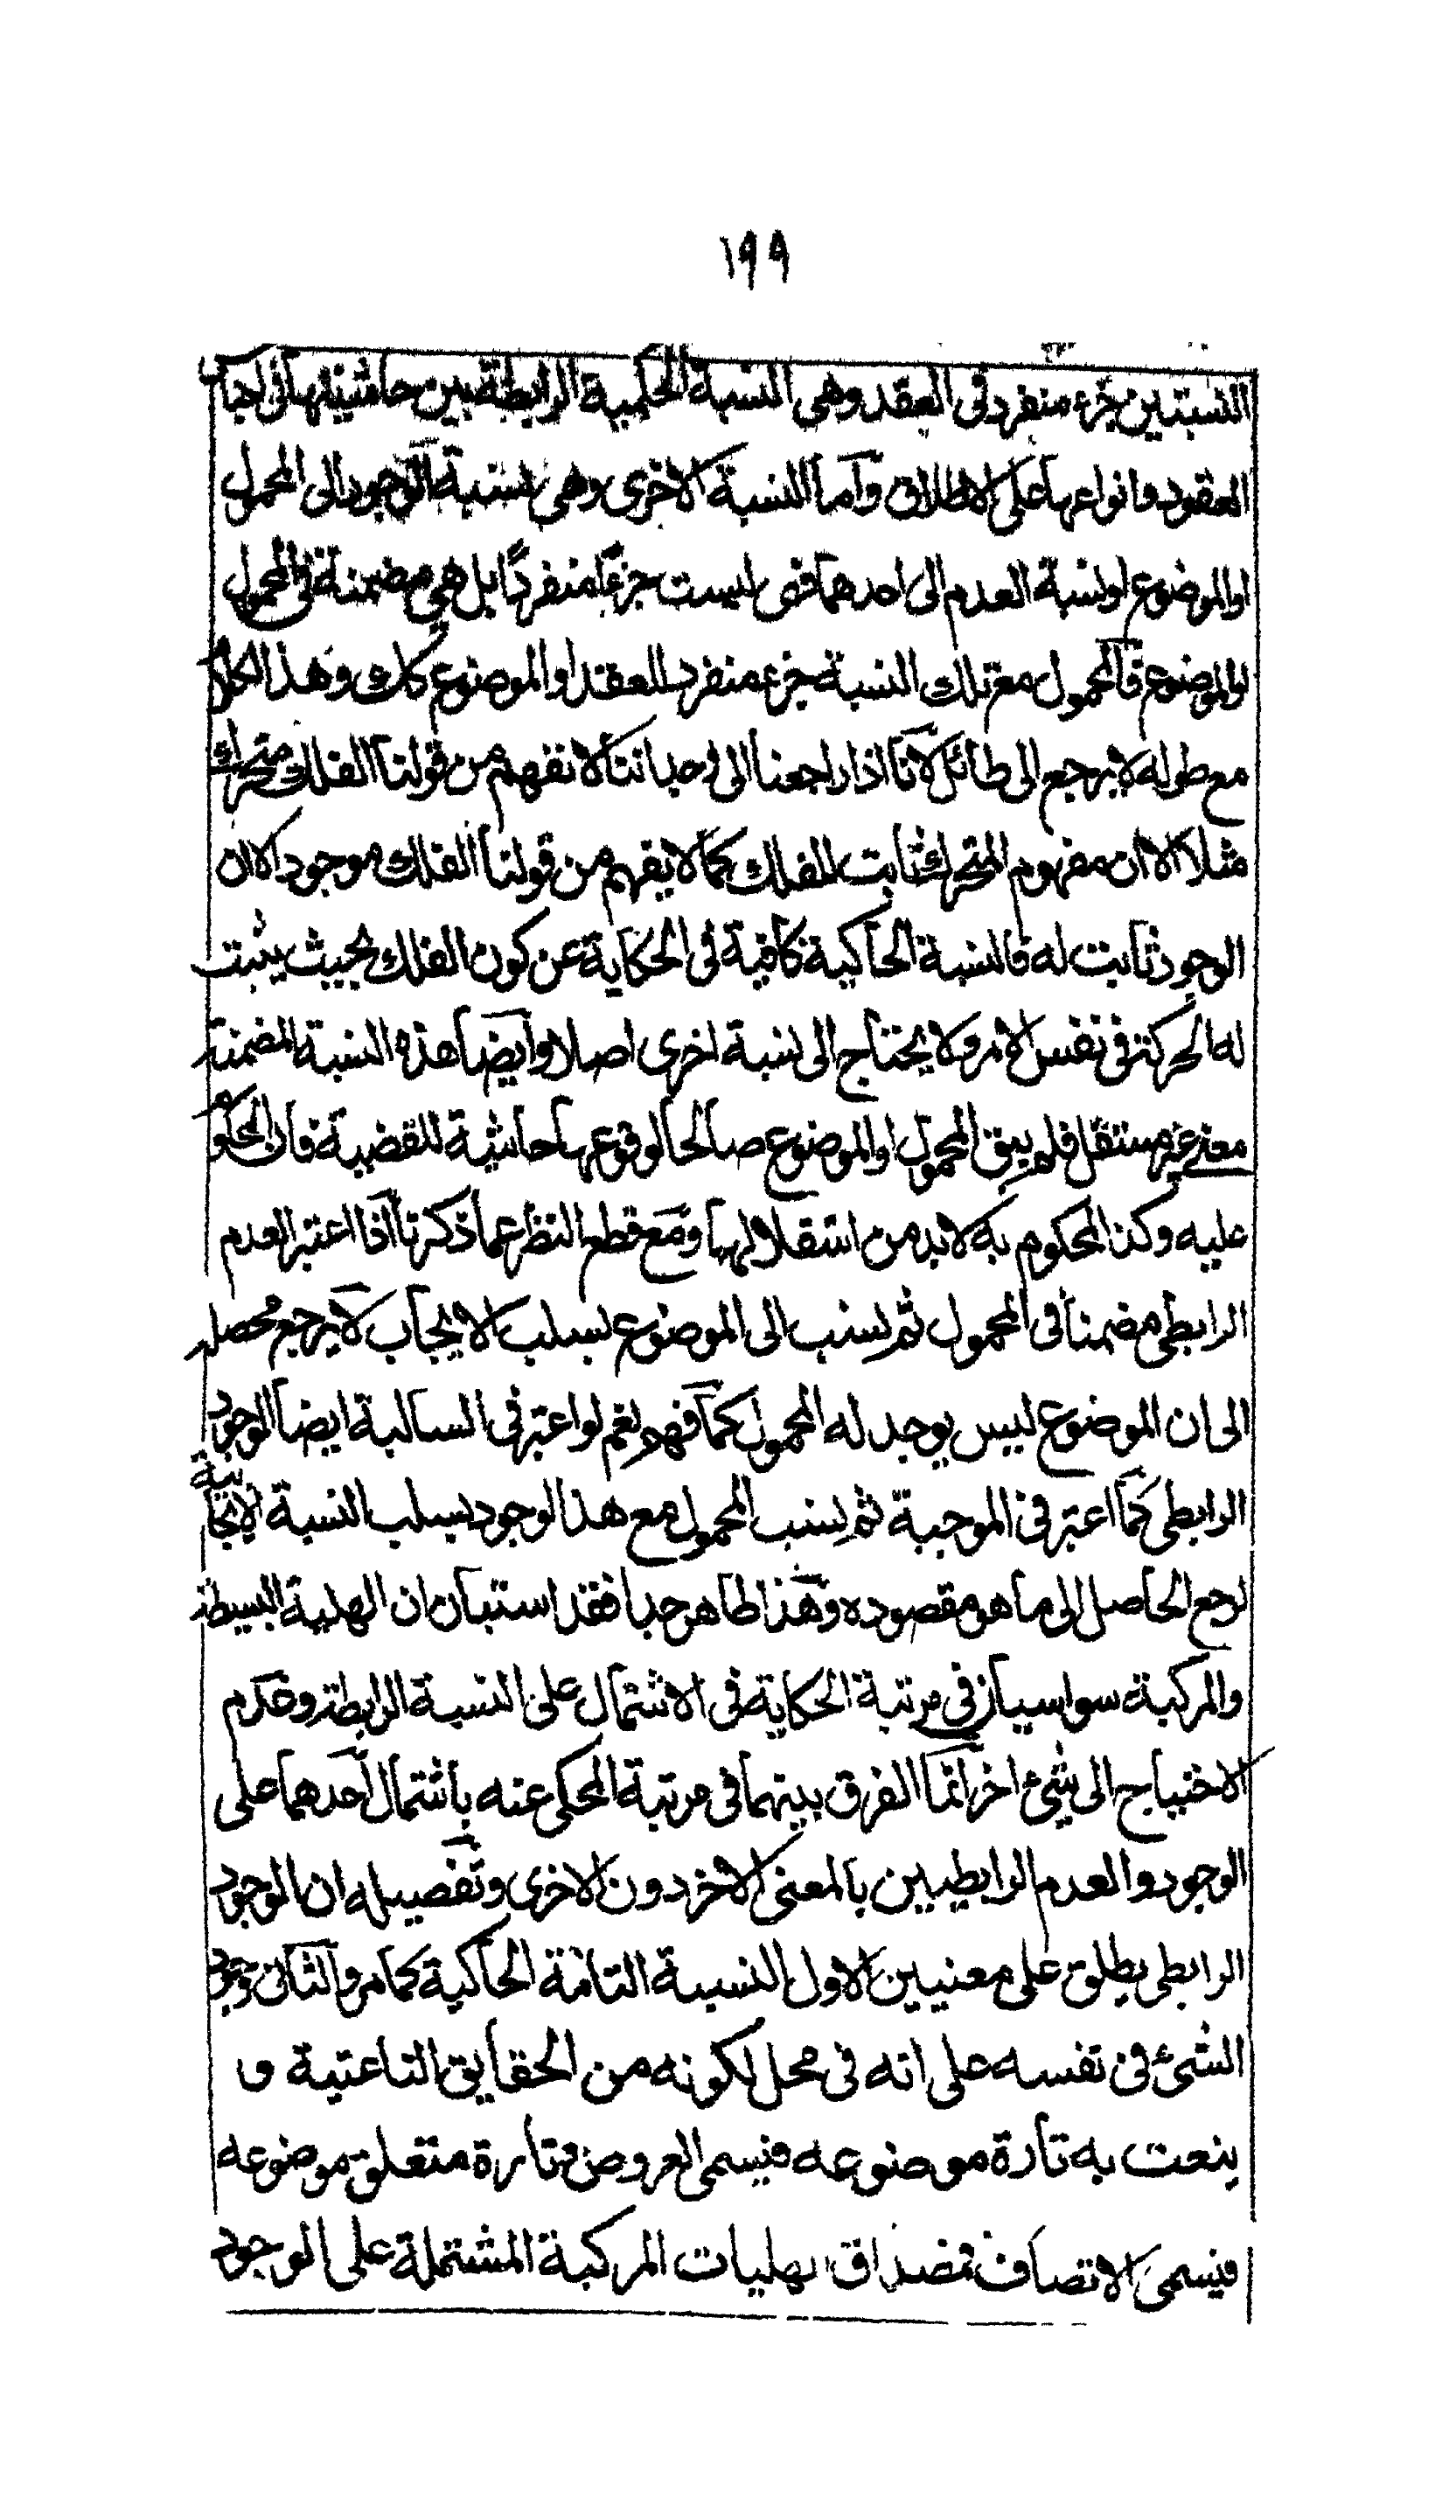 ١٩٩
النسبتين جزء منفرد فى العقد وهى النسبة الحكمية الرابطة بين حاشيتها فى اجناس
العقود وانواعها على الاطلاق واما النسبة الاخرى وهى نسبة الوجود الى المحمول
او الموضوع او نسبة العدم الى احدهما فهى ليست جزءً منفرداً بل هى مضمنة فى المحمول
او الموضوع فالمحمول مع تلك النسبة جزء منفرد للعقد او الموضوع كذلك وهذا الكلام
مع طوله لا يرجع الى طائل لانا اذا راجعنا الى وجداننا لا نفهم من قولنا الفلك متحرك
مثلا الا ان مفهوم المتحرك ثابت للفلك كما لا يفهم من قولنا الفلك موجود الا ان
الوجود ثابت له فالنسبة الحاكية كافية فى الحكاية عن كون الفلك بحيث يثبت
له الحركة فى نفس الامر ولا يحتاج الى نسبة اخرى اصلا وايضا هذه النسبة المضمنة
معنى غير مستقل فلم يبق المحمول او الموضوع صالحا لوقوعها حاشية للقضية فان المحكوم
عليه وكذا المحكوم به لا بد من استقلالهما ومع قطع النظر عما ذكرنا اذا اعتبر العدم
الرابطى مضمنا فى المحمول ثم نسب الى الموضوع بسلب الايجاب لا يرجع محصله
الى ان الموضوع ليس يوجد له المحمول كما فهم نعم لو اعتبر فى السالبة ايضا الوجود
الرابطى كما اعتبر فى الموجبة ثم نسب المحمول مع هذا الوجود بسلب النسبة الايجابية
لرجع الحاصل الى ما هو مقصوده وهذا ظاهر جدا فقد استبان ان الهلية البسيطة
والمركبة سواسيان فى مرتبة الحكاية فى الاشتمال على النسبة الرابطة وعدم
الاحتياج الى شئ اخر انما الفرق بينهما فى مرتبة المحكى عنه باشتمال احدهما على
الوجود والعدم الرابطيين بالمعنى الاخر دون الاخرى وتفصيله ان الوجود
الرابطى يطلق على معنيين الاول النسبة التامة الحاكية كما مر والثانى وجود
الشئ فى نفسه على انه فى محل لكونه من الحقايق الناعتية و
ينعت به تارة موضوعه فيسمى العروض وتارة متعلق موضوعه
فيسمى الاتصاف فمصداق الهليات المركبة المشتملة على الوجود